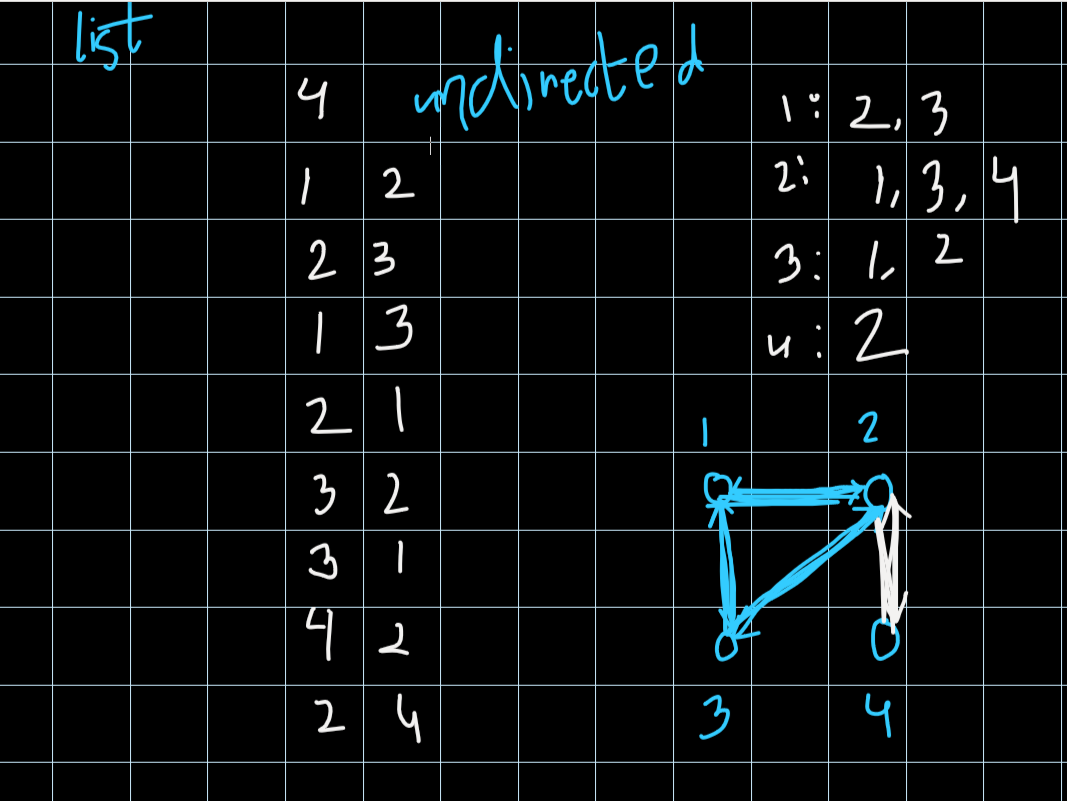 list
undirected
4
1 2
2 3
1 3
2 1
3 2
3 1
4 2
2 4
1: 2, 3
2: 1, 3, 4
3: 1, 2
4: 2
1 2
3 4